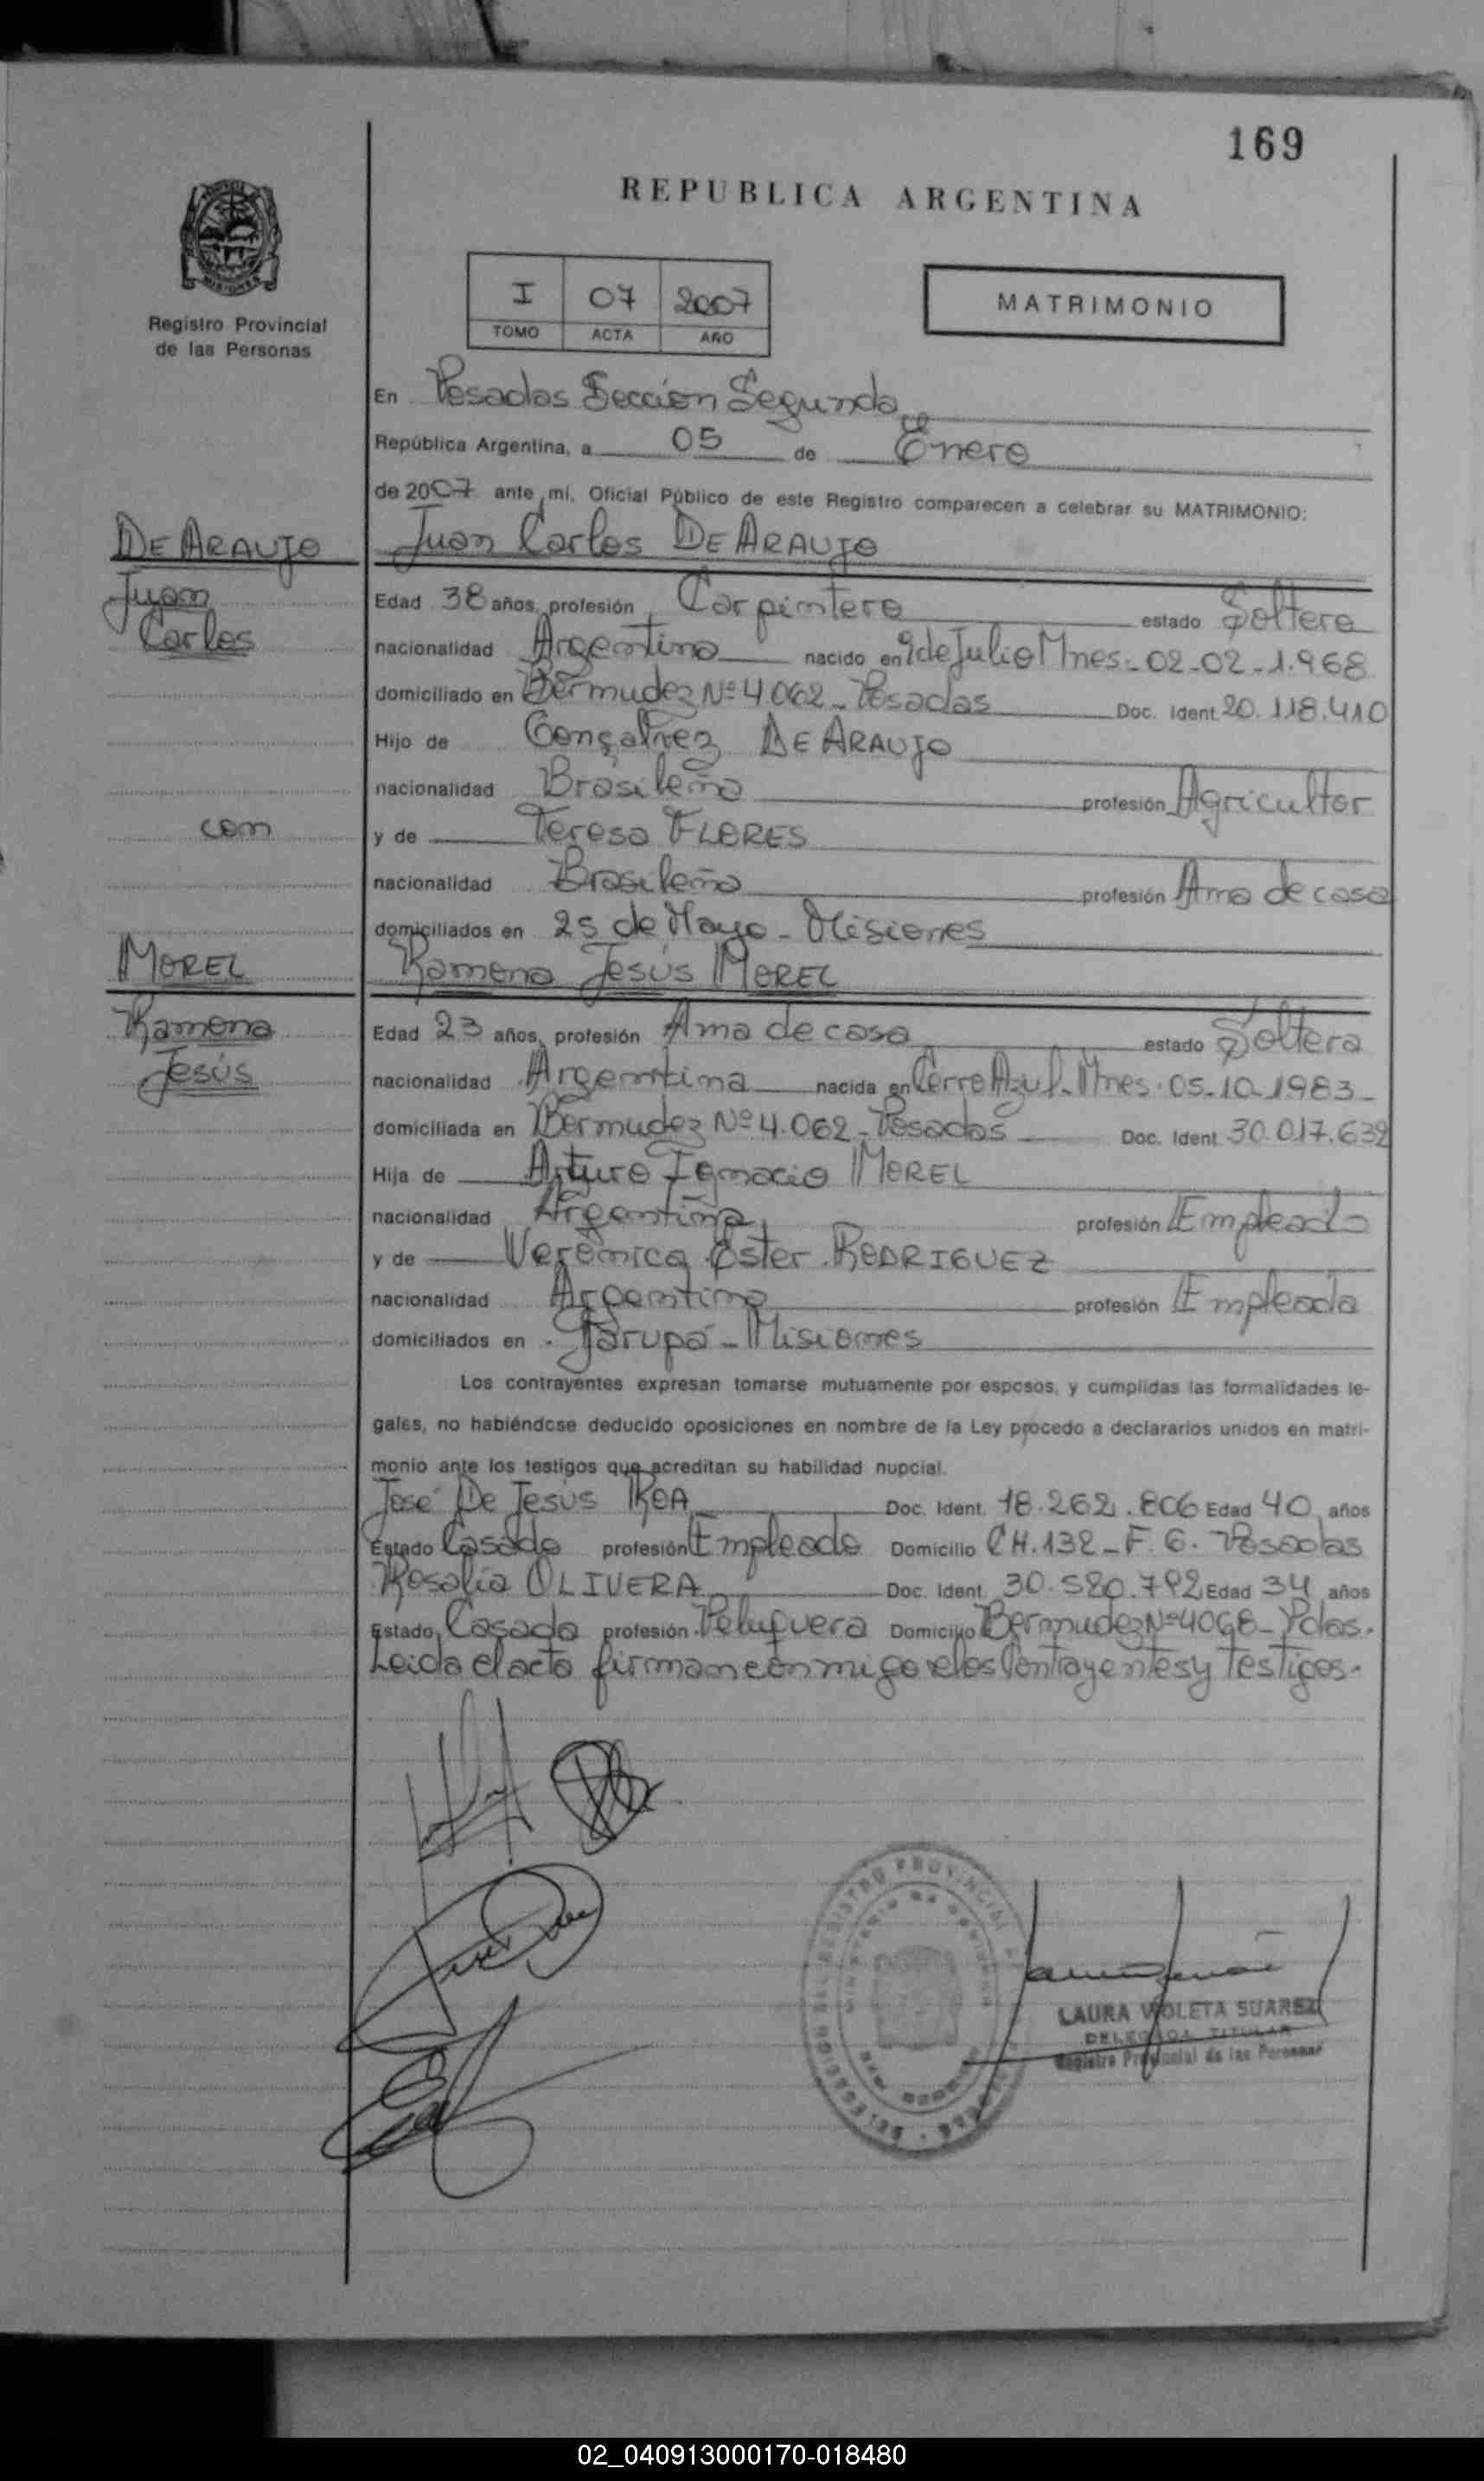 169
REPUBLICA ARGENTINA
Registro Provincial
de las Personas
I 07 2007
TOMO ACTA AÑO
MATRIMONIO
En Posadas Sección Segunda
República Argentina, a 05 de Enero
de 2007 ante mí, Oficial Público de este Registro comparecen a celebrar su MATRIMONIO:
DE ARAUJO
Juan
Carlos
Juan Carlos DE ARAUJO
Edad 38 años, profesión Carpintero estado Soltero
nacionalidad Argentino nacido en 9 de Julio Mnes - 02-02-1.968
domiciliado en Bermudez Nº 4.062 - Posadas Doc. Ident. 20.118.410
Hijo de Gonçalvez DE ARAUJO
nacionalidad Brasileño profesión Agricultor
con
y de Teresa FLORES
nacionalidad Brasileña profesión Ama de casa
domiciliados en 25 de Mayo - Misiones
MOREL
Ramona
Jesús
Ramona Jesús MOREL
Edad 23 años, profesión Ama de casa estado Soltera
nacionalidad Argentina nacida en Cerro Azul - Mnes - 05-10-1983 -
domiciliada en Bermudez Nº 4.062 - Posadas Doc. Ident. 30.017.632
Hija de Arturo Ignacio MOREL
nacionalidad Argentina profesión Empleado
y de Verónica Ester RODRIGUEZ
nacionalidad Argentina profesión Empleada
domiciliados en Garupá - Misiones
Los contrayentes expresan tomarse mutuamente por esposos, y cumplidas las formalidades le-
gales, no habiéndose deducido oposiciones en nombre de la Ley procedo a declararlos unidos en matri-
monio ante los testigos que acreditan su habilidad nupcial.
José De Jesús ROA Doc. Ident. 18.262.806 Edad 40 años
Estado Casado profesión Empleado Domicilio CH.132 - F. 6. Posadas
Rosalia OLIVERA Doc. Ident. 30.580.792 Edad 34 años
Estado Casada profesión Peluquera Domicilio Bermudez Nº 4068 - Pdas.
Leida el acta firman conmigo los Contrayentes y Testigos.
LAURA VIOLETA SUAREZ
DELEGADA TITULAR
Registro Provincial de las Personas
02_040913000170-018480